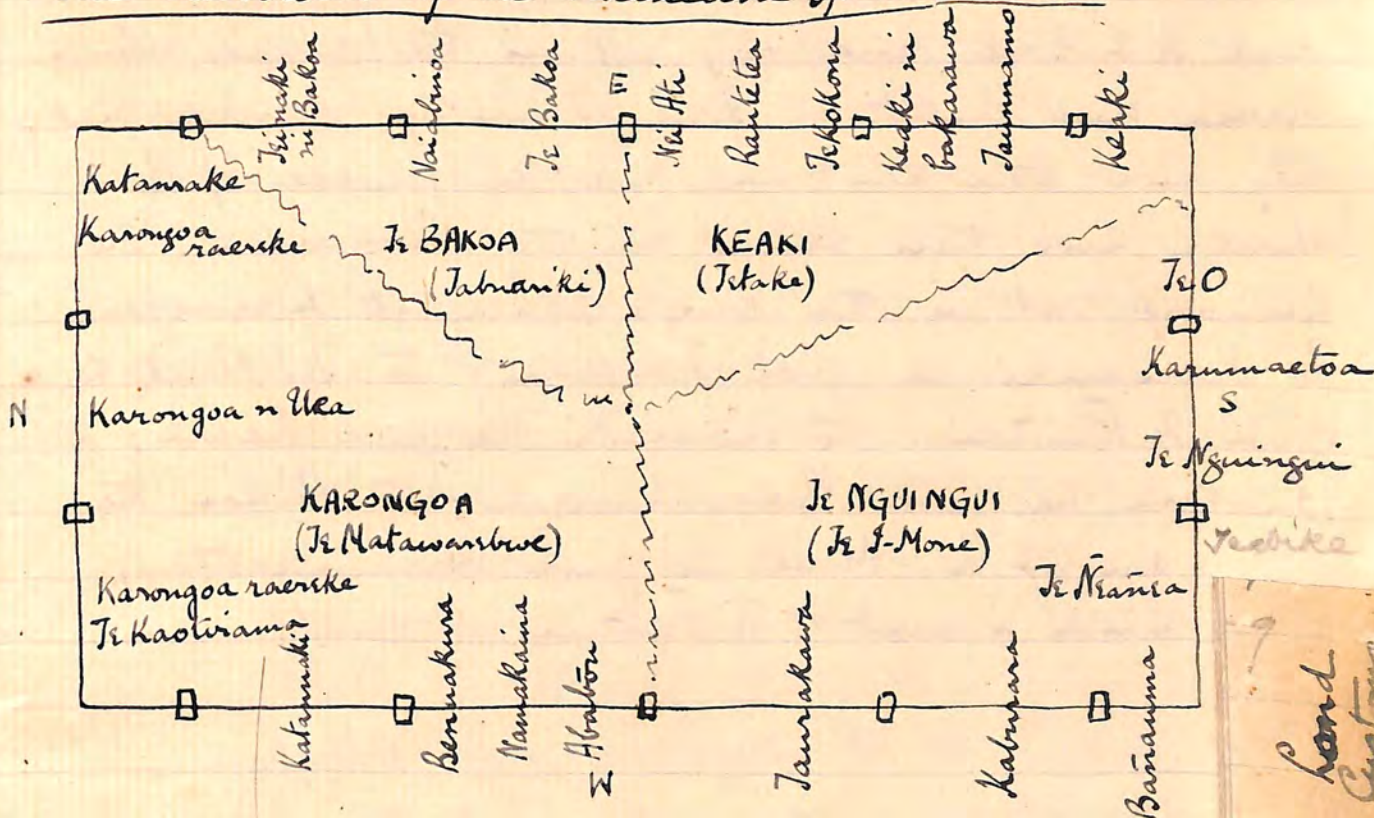 Teinaki
ni Bakoa
Naiabinoa
Te Bakoa
E
Nei Ati
Rantetea
Tekokona
Keaki ni
bakarawa
Taunnamo
Keaki
Katanrake
Karongoa
raereke
Te BAKOA
(Tabuariki)
KEAKI
(Tetake)
Te O
Karumaetoa
N
Karongoa n Uea
S
Te Nguingui
KARONGOA
(Te Matawarebwe)
Te NGUINGUI
(Te I-Mone)
Teabike
Karongoa raereke
Te Kaotirama
Te Ñeañea
Katannaki
Bermakura
Namakaina
Ababōu
W
Taurakawa
Kaburara
Bañauma
Land